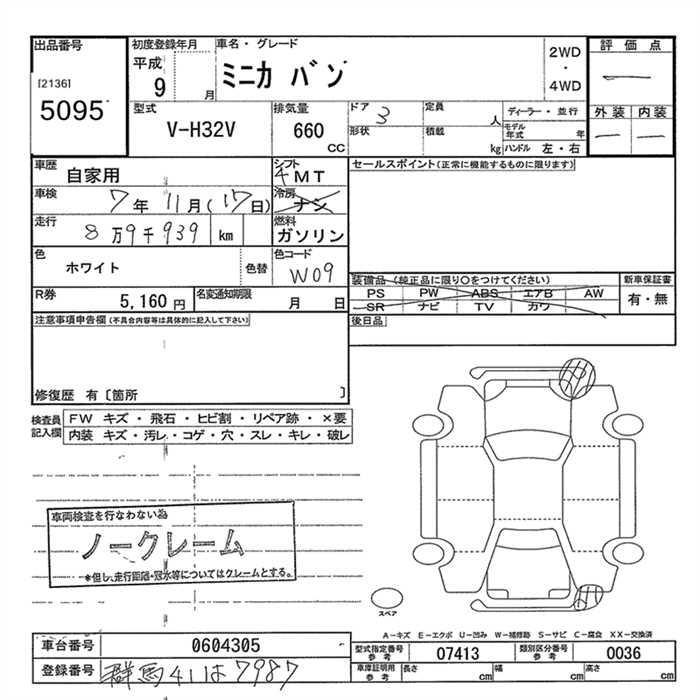 出品番号
[2136]
5095
初度登録年月
平成
9 月
車名・グレード
ミニカ バン
2WD
・
4WD
評価点
一
外装 内装
一 一
型式
V-H32V
排気量
660
CC
ドア
3
形状
定員
人
積載
kg
ディーラー・並行
モデル
年式 年
ハンドル 左・右
車歴
自家用
シフト
4MT
車検
7年 11月(17日)
冷房
ナシ
走行
8万9千939 km
燃料
ガソリン
色
ホワイト
色替
色コード
W09
R券
5,160 円
名変通知期限
月 日
セールスポイント(正常に機能するものに限ります)
装備品 (純正品に限り○をつけてください)
PS PW ABS エアB AW
SR ナビ TV カワ
新車保証書
有・無
後日品
注意事項申告欄(不具合内容等は具体的に記入して下さい)
修復歴 有〔箇所 〕
検査員
記入欄
FW キズ・飛石・ヒビ割・リペア跡・×要
内装 キズ・汚レ・コゲ・穴・スレ・キレ・破レ
車両検査を行なわない為
ノークレーム
*但し、走行距離・冠水等についてはクレームとする。
スペア
A−キズ E−エクボ U−凹み W−補修跡 S−サビ C−腐食 XX−交換済
車台番号
0604305
型式指定番号
参考
07413
類別区分番号
参考
0036
登録番号
群馬41は7987
車庫証明用
参考
長さ cm
幅 cm
高さ cm